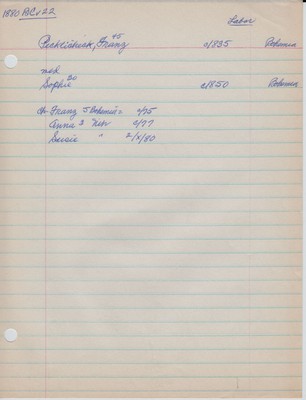 1880 BCv22
Labor
Franz 45 c/1835 Bohemia
md
Sophie 30 c/1850 Bohemia
ch Franz 5 Bohemia c/75
Anna 3 Nebr c/77
Susie " 2/x/80